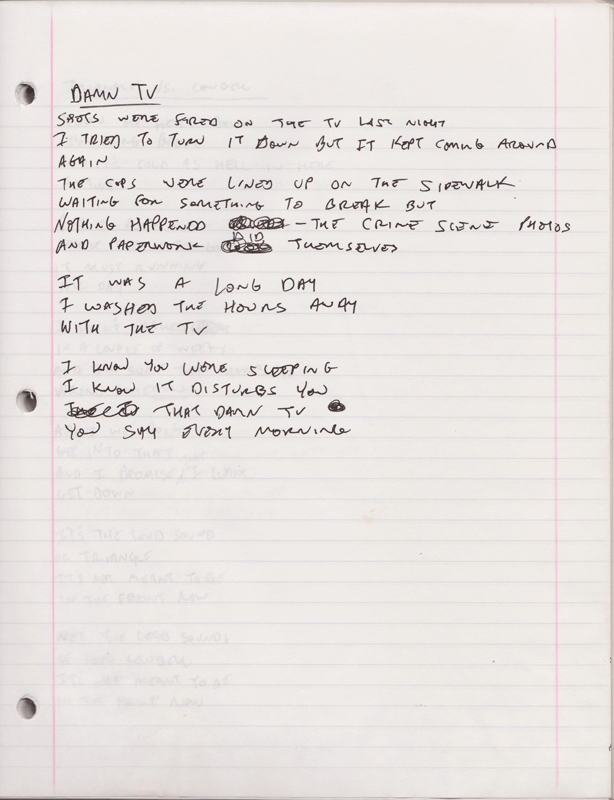 DAMN TV
SHOTS WERE FIRED ON THE TV LAST NIGHT
I TRIED TO TURN IT DOWN BUT IT KEPT COMING AROUND
AGAIN
THE COPS WERE LINED UP ON THE SIDEWALK
WAITING FOR SOMETHING TO BREAK BUT
NOTHING HAPPENED - THE CRIME SCENE PHOTOS
AND PAPERWORK DID THEMSELVES
IT WAS A LONG DAY
I WASHED THE HOURS AWAY
WITH THE TV
I KNOW YOU WERE SLEEPING
I KNOW IT DISTURBS YOU
THAT DAMN TV
YOU SAY EVERY MORNING